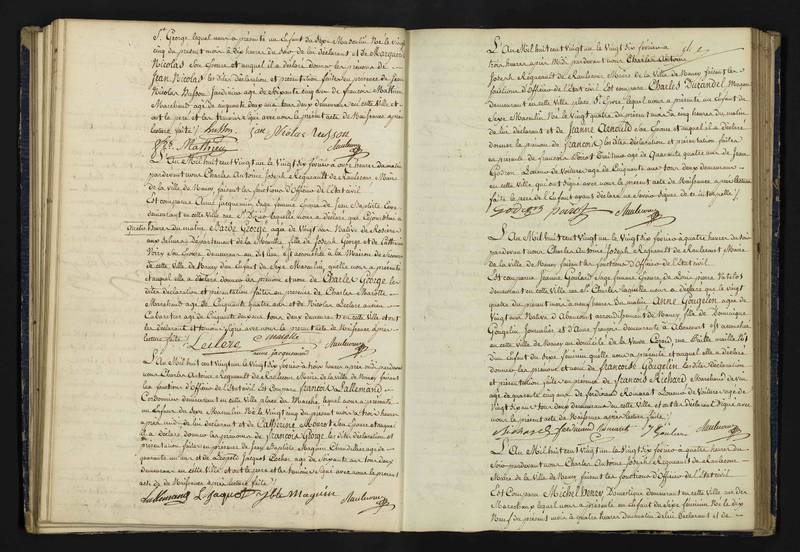 St George lequel nous a présenté un Enfant du Sexe Masculin Né le Vingt
cinq du présent mois à dix heures du Soir de lui déclarant et de Marguerite
Nicolas Son Epouse et auquel il a déclaré donner les prénoms de
Jean Nicolas les dites déclaration et présentation faites en présence de Jean
Nicolas Husson Jardinier agé de Soixante cinq ans de françois Mathieu
Marchand agé de cinquante deux ans tous deux demeurant en cette Ville et
ont le père et les témoins Signé avec nous le présent acte de Naissance après
lecture faite /. husson Jean Nicolas husson
fçs Mathieu
L'An Mil huit cent Vingt un le Vingt Six février à onze heures du matin
pardevant nous Charles Antoine Joseph Regneault de Raulecour Maire
de la Ville de Nancy faisant les fonctions d'Officier de l'Etat civil
Est comparue Anne Jacquemin Sage femme Epouse de Jean Baptiste
demeurant en cette Ville rue St Dizier laquelle nous a déclaré que Cejourd'hui à
quatre heures du matin Barbe George agée de Vingt ans Native de Rosières
aux Salines Département de la Meurthe, fille de Joseph George et de Catherine
Son Epouse, demeurant au dit lieu, est accouchée à la Maison de Secours
de cette Ville de Nancy d'un Enfant du Sexe Masculin, qu'elle nous a présenté
et auquel elle a déclaré donner les prénom et nom de Charles George les
dites déclaration et présentation faites en présence de Charles Marotte
Marchand agé de Cinquante quatre ans et de Nicolas Leclerc ancien
Cabaretier agé de Cinquante deux ans tous deux demeurant en cette Ville et ont
la déclarante et témoins Signé avec nous le présent acte de Naissance après
lecture faite /. Leclerc marotte
anne jacquemin
L'An Mil huit cent Vingt un le Vingt Six février à trois heures après midi pardevant
nous Charles Antoine Joseph Regneault de Raulecour Maire de la Ville de Nancy faisant
les fonctions d'Officier de l'Etat civil Est Comparu françois Lallemand
Cordonnier demeurant en cette Ville place du Marché lequel nous a présenté
un Enfant du Sexe Masculin Né le Vingt cinq du présent mois à trois heures
après midi de lui déclarant et de Catherine Son Epouse et auquel
il a déclaré donner les prénoms de françois George les dites déclaration et
présentation faites en présence de Jean Baptiste Maguin Chaudelier agé de
quarante un ans et de Léopold Jacquot Cocher agé de Soixante ans tous deux
demeurant en cette Ville et ont le père et les témoins Signé avec nous le présent
acte de Naissance après lecture faite /.
Lallemand L jaquot jbte maguin
L'An Mil huit cent Vingt un le Vingt Six février à
trois heures après Midi pardevant nous Charles Antoine
Joseph Regneault de Raulecour Maire de la Ville de Nancy faisant les
fonctions d'Officier de l'Etat civil
Est comparu Charles Durandel Maçon
Demeurant en cette Ville place St Epvre lequel nous a présenté un Enfant du
Sexe Masculin Né le Vingt quatre du présent mois à cinq heures du matin
de lui déclarant et de Jeanne Son Epouse et auquel il a déclaré
donner le prénom de françois les dites déclaration et présentation faites
en présence de françois agé de Quarante quatre ans de Jean
Godron Loueur de Voitures agé de Cinquante ans tous deux demeurant
en cette Ville, qui ont Signé avec nous le présent acte de Naissance après lecture
faite le père de l'Enfant ayant déclaré ne Savoir Signer de ce interpellé /.
L'An Mil huit cent Vingt un le Vingt Six février à quatre heures du Soir
pardevant nous Charles Antoine Joseph Regneault de Raulecour Maire
de la Ville de Nancy faisant les fonctions d'Officier de l'Etat civil
Est comparue Jeanne Sage femme Epouse de Louis pierre
demeurant en cette Ville rue St Charles laquelle nous a déclaré que le Vingt
quatre du présent mois à neuf heures du matin Anne Gougelin agée de
Vingt ans Native d'Abaucourt arrondissement de Nancy, fille de Dominique
Gougelin Journalier et d'Anne françois demeurants à Abaucourt est accouchée
en cette Ville de Nancy au domicile de la Veuve
d'un Enfant du Sexe féminin qu'elle nous a présenté et auquel elle a déclaré
donner les prénom et nom de françoise Gougelin les dites déclaration
et présentation faites en présence de françois Richard Marchand de vin
agé de quarante cinq ans de ferdinand Loueur de Voitures agé de
Vingt six ans tous deux demeurant en cette Ville et ont la déclarante Signé avec
nous le présent acte de Naissance après lecture faite /.
Richard ferdinand
L'An Mil huit cent Vingt un le Vingt Six février à quatre heures du
Soir pardevant nous Charles Antoine Joseph Regneault de Raulecour
Maire de la Ville de Nancy faisant les fonctions d'Officier de l'Etat civil
Est Comparu Michel henry Domestique demeurant en cette Ville rue des
Maréchaux lequel nous a présenté un Enfant du Sexe féminin Né le Dix
Neuf du présent mois à quatre heures du matin de lui Déclarant et de